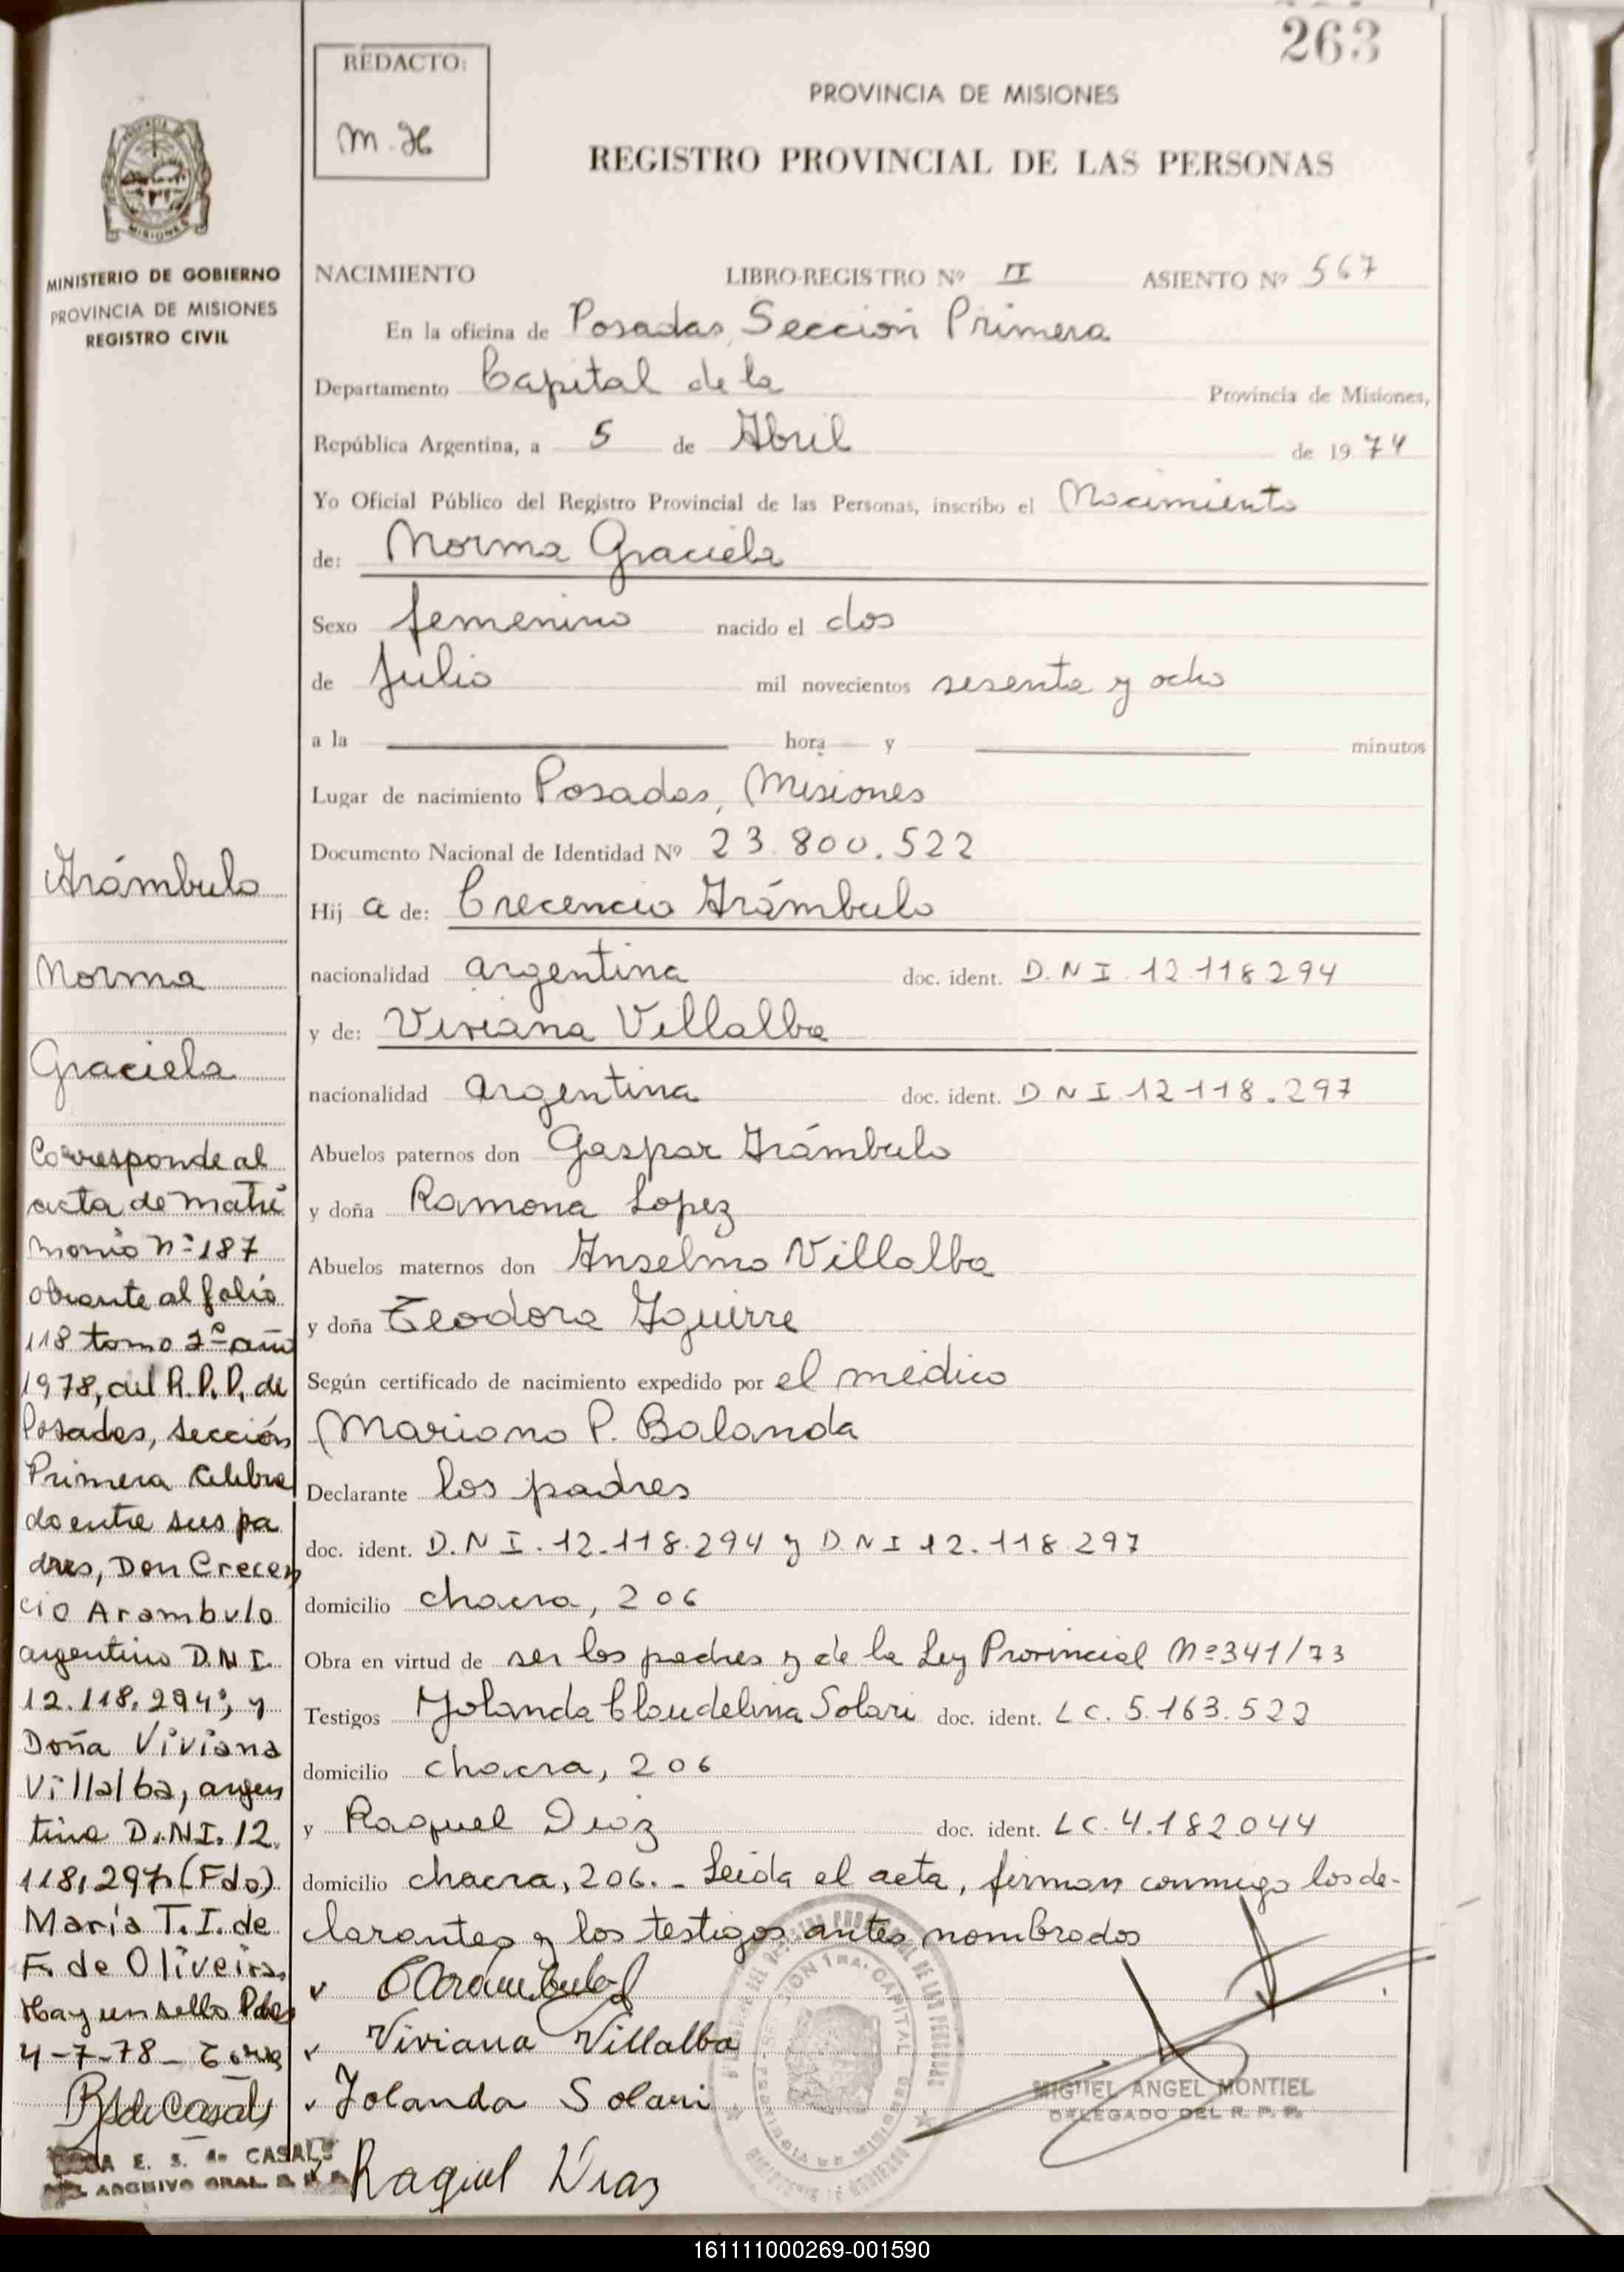 263
REDACTO:
M. H
PROVINCIA DE MISIONES
REGISTRO PROVINCIAL DE LAS PERSONAS
MISIONES
MINISTERIO DE GOBIERNO
PROVINCIA DE MISIONES
REGISTRO CIVIL
NACIMIENTO LIBRO-REGISTRO Nº II ASIENTO Nº 567
En la oficina de Posadas, Sección Primera
Departamento Capital de la Provincia de Misiones,
República Argentina, a 5 de Abril de 1974
Yo Oficial Público del Registro Provincial de las Personas, inscribo el Nacimiento
de: Norma Graciela
Sexo femenino nacido el dos
de Julio mil novecientos sesenta y ocho
a la hora y minutos
Lugar de nacimiento Posadas, Misiones
Documento Nacional de Identidad Nº 23.800.522
Hij a de: Crecencio Arámbulo
nacionalidad argentina doc. ident. D.N I. 12.118294
y de: Viviana Villalba
nacionalidad argentina doc. ident. D N I 12 118.297
Abuelos paternos don Gaspar Arámbulo
y doña Ramona Lopez
Abuelos maternos don Anselmo Villalba
y doña Teodora Aguirre
Según certificado de nacimiento expedido por el médico
Mariano P. Balanda
Declarante los padres
doc. ident. D.N I. 12.118.294 y D.N I 12.118.297
domicilio chacra, 206
Obra en virtud de ser los padres y de la Ley Provincial Nº 341/73
Testigos Yolanda Claudelina Solari doc. ident. L C. 5.163.522
domicilio chacra, 206
y Raquel Diaz doc. ident. L C. 4.182044
domicilio chacra, 206. - Leída el acta, firman conmigo los de-
clarantes y los testigos antes nombrados
CArambulo
Viviana Villalba
Yolanda Solari
Raquel Dias
MIGUEL ANGEL MONTIEL
DELEGADO DEL R. P. P.
Arámbulo
Norma
Graciela
Corresponde al
acta de matri
monio nº 187
obrante al folio
118 tomo 2º año
1978, del R.P.P. de
Posadas, sección
Primera Celebra
do entre sus pa
dres, Don Crecen
cio Arambulo
argentino D.N.I.
12.118.294; y
Doña Viviana
Villalba, argen
tina D.N.I. 12.
118,297 (Fdo)
María T. I. de
F. de Oliveira,
Hay un sello Pdas
4-7-78-
BSdeCasals
E. S. de CASALS
ARCHIVO GRAL. R. P. P.
161111000269-001590